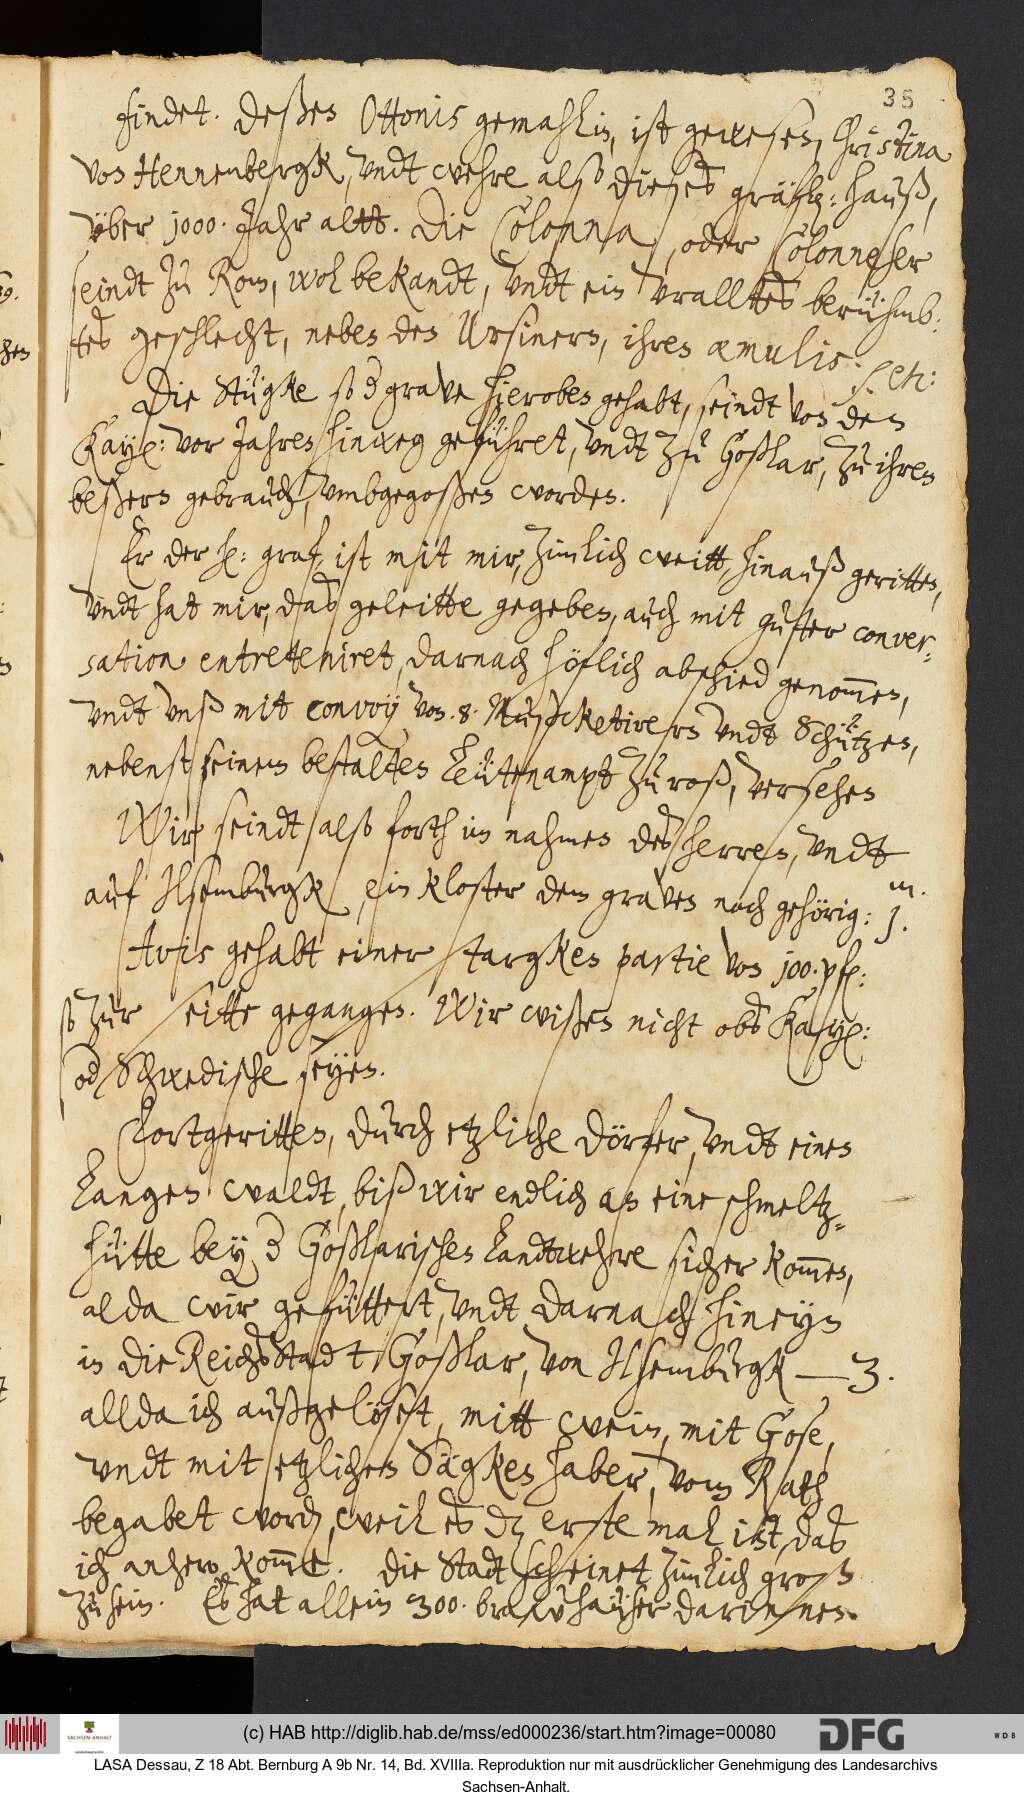 35
findet. Deßen Ottonis gemahlin, ist gewesen, Christina
von Hennenbergk, undt wehre also dieses gräfl: hauß,
über 1000. Jahr altt. Die Colonna, oder Colonneser
seindt zu Rom, wol bekandt, undt ein uralltes berühmb-
tes geschlecht, neben den Ursinern, ihren æmulis. etc:
Die Stügke so d grave hieroben gehabt, seindt von den
Kayß: vor Jahren hinweg geführet, undt zu Goßlar, zu ihren
beßern gebrauch, umbgegoßen worden.
Er der H: graf, ist mit mir, zimlich weitt, hinauß geritten,
undt hat mir, das geleitte gegeben, auch mit guter conver-
sation entretteniret, darnach höflich abschied genommen,
undt unß mit convoy von .8. Mußcketirern undt Schützen,
nebenst seinem bestalten Leütenampt zu roß, versehen
Wir seindt also forth im nahmen des herren, undt
auf Ilsemburgk, ein kloster dem graven noch gehörig: 1. m.
Avis gehabt einer stargken partie von 100. pf:
so zur seitte gegangen. Wir wißen nicht obs Kayß:
od Schwedische seyen.
Fortgeritten, durch etzliche dörfer, undt einen
Langen waldt, biß wir endlich an eine schmeltz-
hütte bey d Goßlarischen Landtwehre sicher kommen,
alda wir gefüttert, undt darnach hineyn
in die ReichsStadt Goßlar, von Ilsemburgk — 3.
allda ich außgelöset, mitt wein, mit Gose,
undt mit etzlichen Sägken haber, vom Rath
begabet word, weil es dz erste mal ist, das
ich anhero komme. Die Stadt scheinet zimlich groß
zu sein. Es hat allein 300. brawhäuser darinnen.
(c) HAB http://diglib.hab.de/mss/ed000236/start.htm?image=00080
SACHSEN-ANHALT
Landeshauptarchiv
DFG
WDB
LASA Dessau, Z 18 Abt. Bernburg A 9b Nr. 14, Bd. XVIIIa. Reproduktion nur mit ausdrücklicher Genehmigung des Landesarchivs
Sachsen-Anhalt.